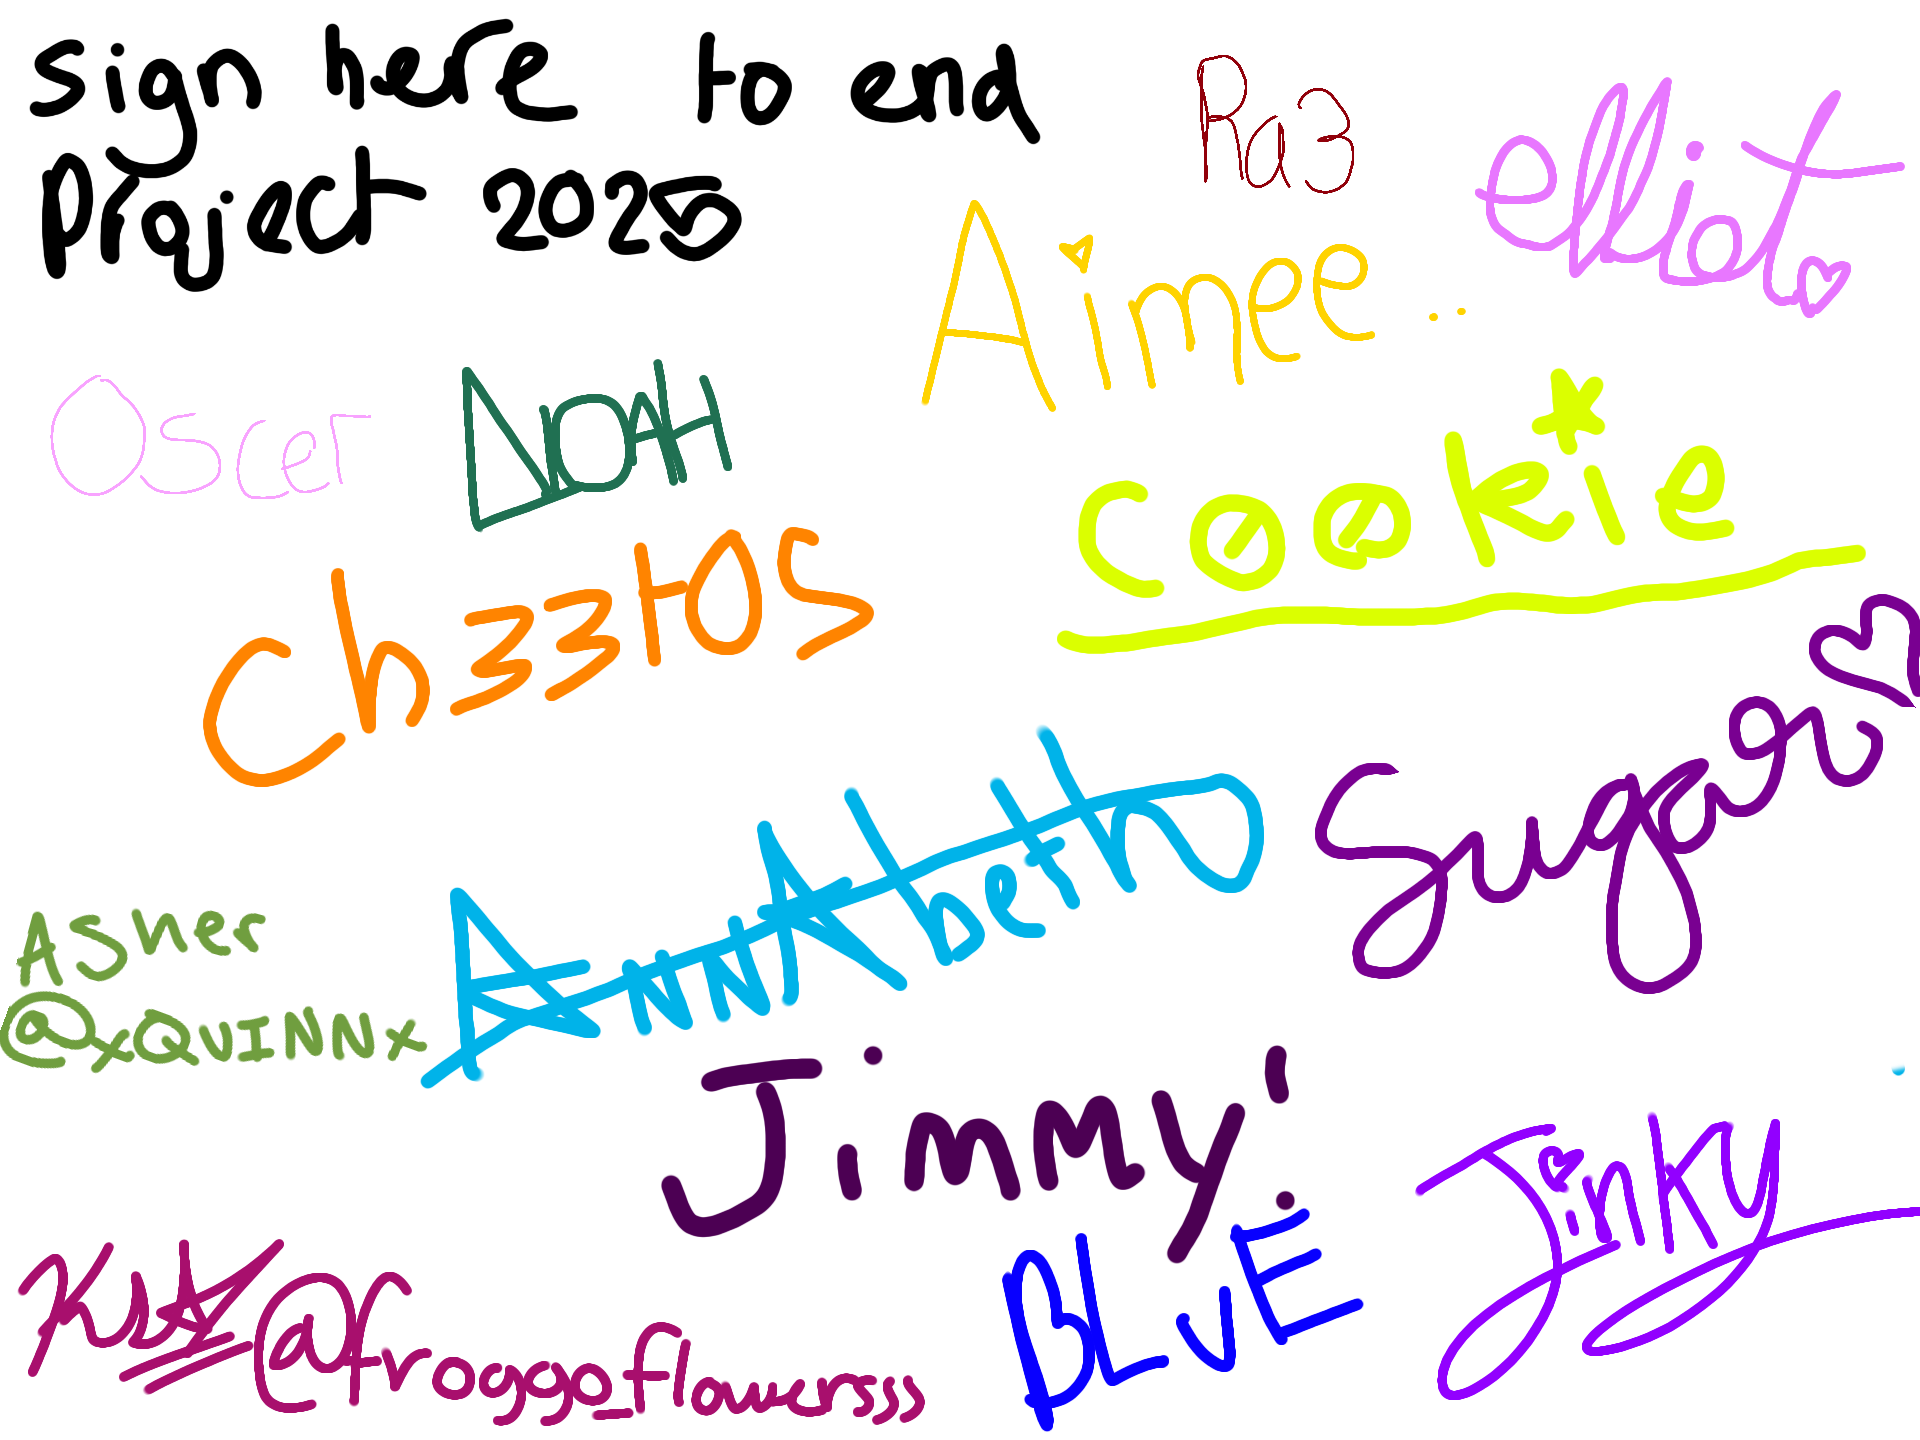 sign here to end
project 2025
Ra3
elliot
Aimee..
Oscer
NOAH
cookie
Ch33tos
Sugar
AnnAbeth
Asher
@xQUINNx
Jimmy
Jinky
BLuE
@froggo_flowersss